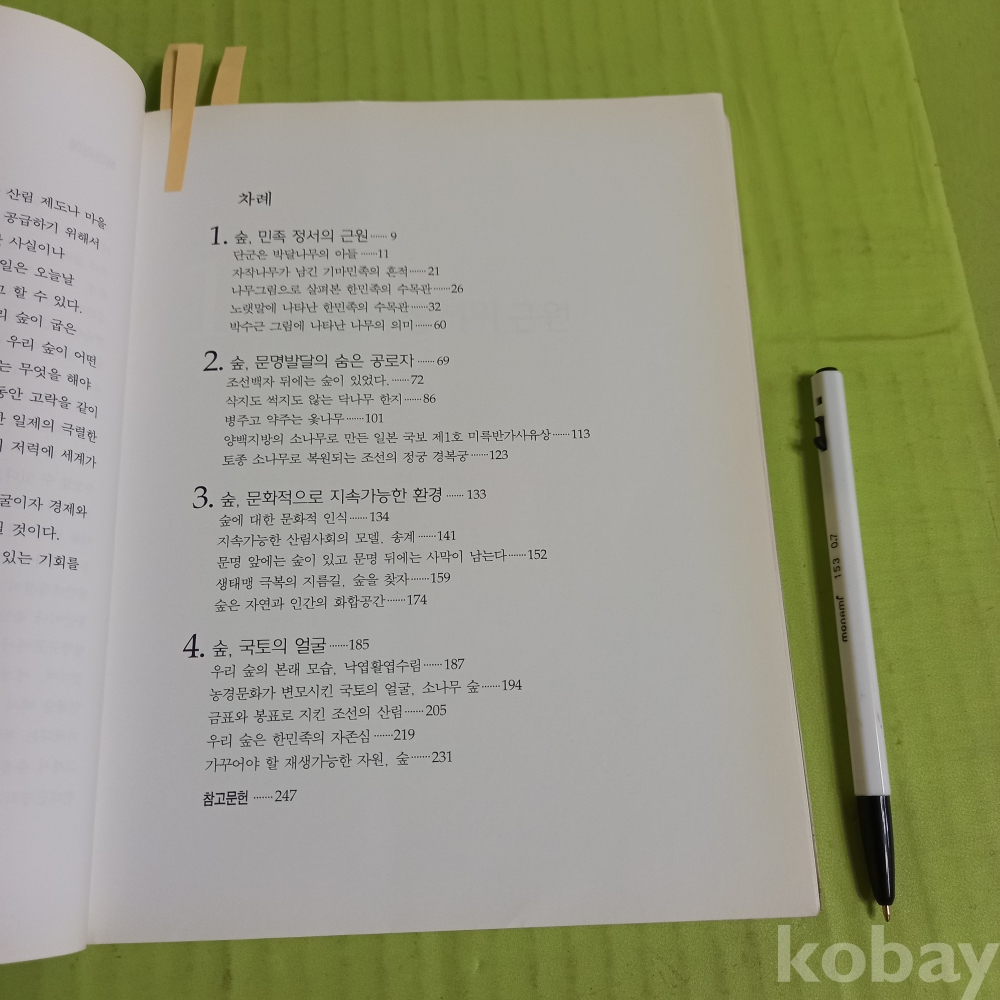 산림 제도나 마을
공급하기 위해서
사실이나
일은 오늘날
할 수 있다.
숲이 굽은
우리 숲이 어떤
는 무엇을 해야
동안 고락을 같이
일제의 극렬한
저력에 세계가
굴이자 경제와
될 것이다.
있는 기회를
차례
1. 숲, 민족 정서의 근원 ······ 9
단군은 박달나무의 아들 ······11
자작나무가 남긴 기마민족의 흔적······21
나무그림으로 살펴본 한민족의 수목관······26
노랫말에 나타난 한민족의 수목관······32
박수근 그림에 나타난 나무의 의미······60
2. 숲, 문명발달의 숨은 공로자 ······ 69
조선백자 뒤에는 숲이 있었다.······72
삭지도 썩지도 않는 닥나무 한지······86
병주고 약주는 옻나무······101
양백지방의 소나무로 만든 일본 국보 제1호 미륵반가사유상······113
토종 소나무로 복원되는 조선의 정궁 경복궁······123
3. 숲, 문화적으로 지속가능한 환경 ······ 133
숲에 대한 문화적 인식······134
지속가능한 산림사회의 모델, 송계······141
문명 앞에는 숲이 있고 문명 뒤에는 사막이 남는다······152
생태맹 극복의 지름길, 숲을 찾자······159
숲은 자연과 인간의 화합공간······174
4. 숲, 국토의 얼굴 ······185
우리 숲의 본래 모습, 낙엽활엽수림······187
농경문화가 변모시킨 국토의 얼굴, 소나무 숲······194
금표와 봉표로 지킨 조선의 산림······205
우리 숲은 한민족의 자존심······219
가꾸어야 할 재생가능한 자원, 숲······231
참고문헌 ······247
monami 153 0.7
kobay